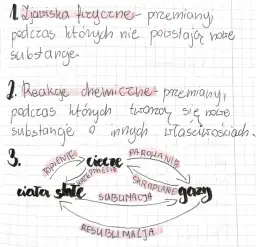 1. Zjawiska fizyczne - przemiany,
podczas których nie powstają nowe
substancje.
2. Reakcje chemiczne - przemiany,
podczas których tworzą się nowe
substancje o innych właściwościach.
3.
TOPNIENIE
ciecze
PAROWANIE
KRZEPNIĘCIE
SKRAPLANIE
ciała stałe
SUBLIMACJA
gazy
RESUBLIMACJA